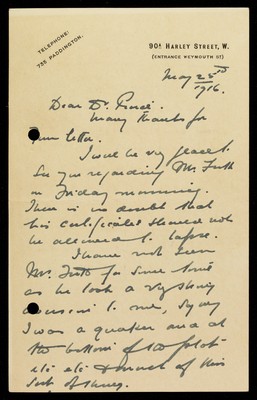 TELEPHONE:
755 PADDINGTON.
90A HARLEY STREET, W.
(ENTRANCE WEYMOUTH ST)
May 25th
1916.
Dear Dr.
Many thanks for
your letter.
I will be very pleased to
see you regarding Mr. Firth
on Friday morning.
There is no doubt that
his certificates should not
be allowed to lapse.
I have not seen
Mr. Firth for some time
as he took a very strong
aversion to me, saying
I was a quaker and at
the bottom of a plot
etc etc & much of this
sort of thing.